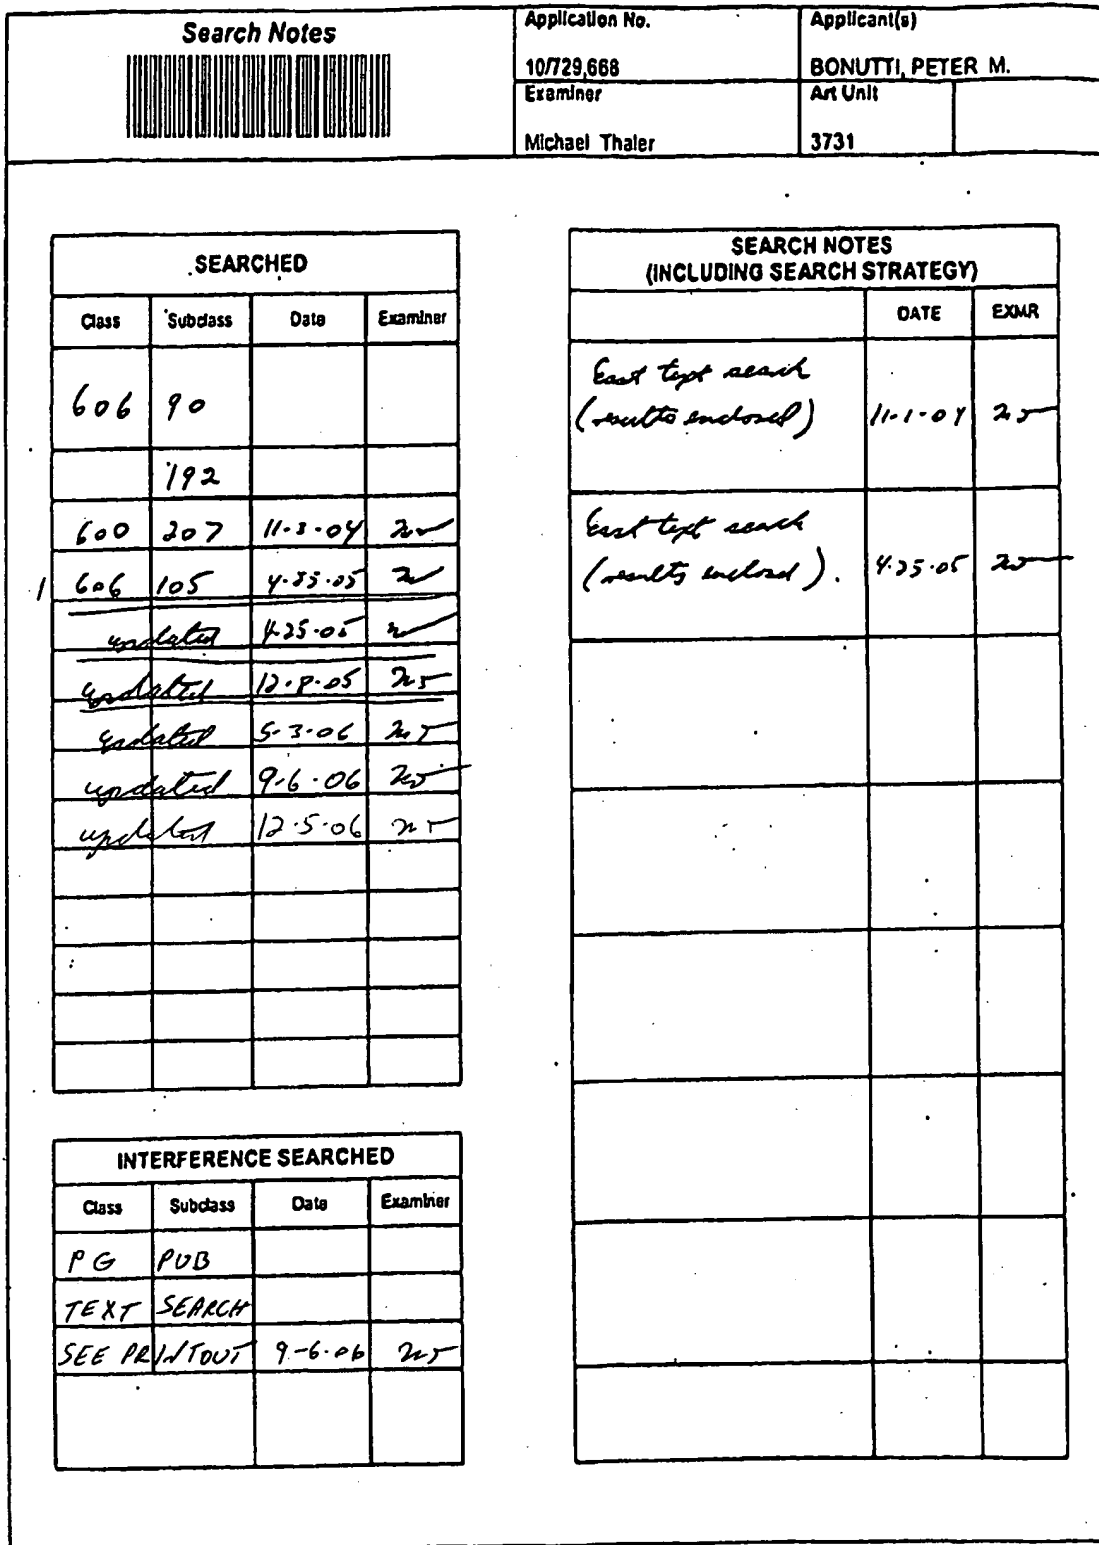 Search Notes
Application No.
10/729,668
Applicant(s)
BONUTTI, PETER M.
Examiner
Michael Thaler
Art Unit
3731
SEARCHED
Class Subclass Date Examiner
606 90
192
600 207 11-3-04
606 105 4-25-05
updated 4-25-05
updated 12-8-05
updated 5-3-06
updated 9-6-06
updated 12-5-06
INTERFERENCE SEARCHED
Class Subclass Date Examiner
PG PUB
TEXT SEARCH
SEE PRINTOUT 9-6-06
SEARCH NOTES
(INCLUDING SEARCH STRATEGY)
DATE EXMR
East text search
(results enclosed) 11-1-04
East text search
(results enclosed). 4-25-05